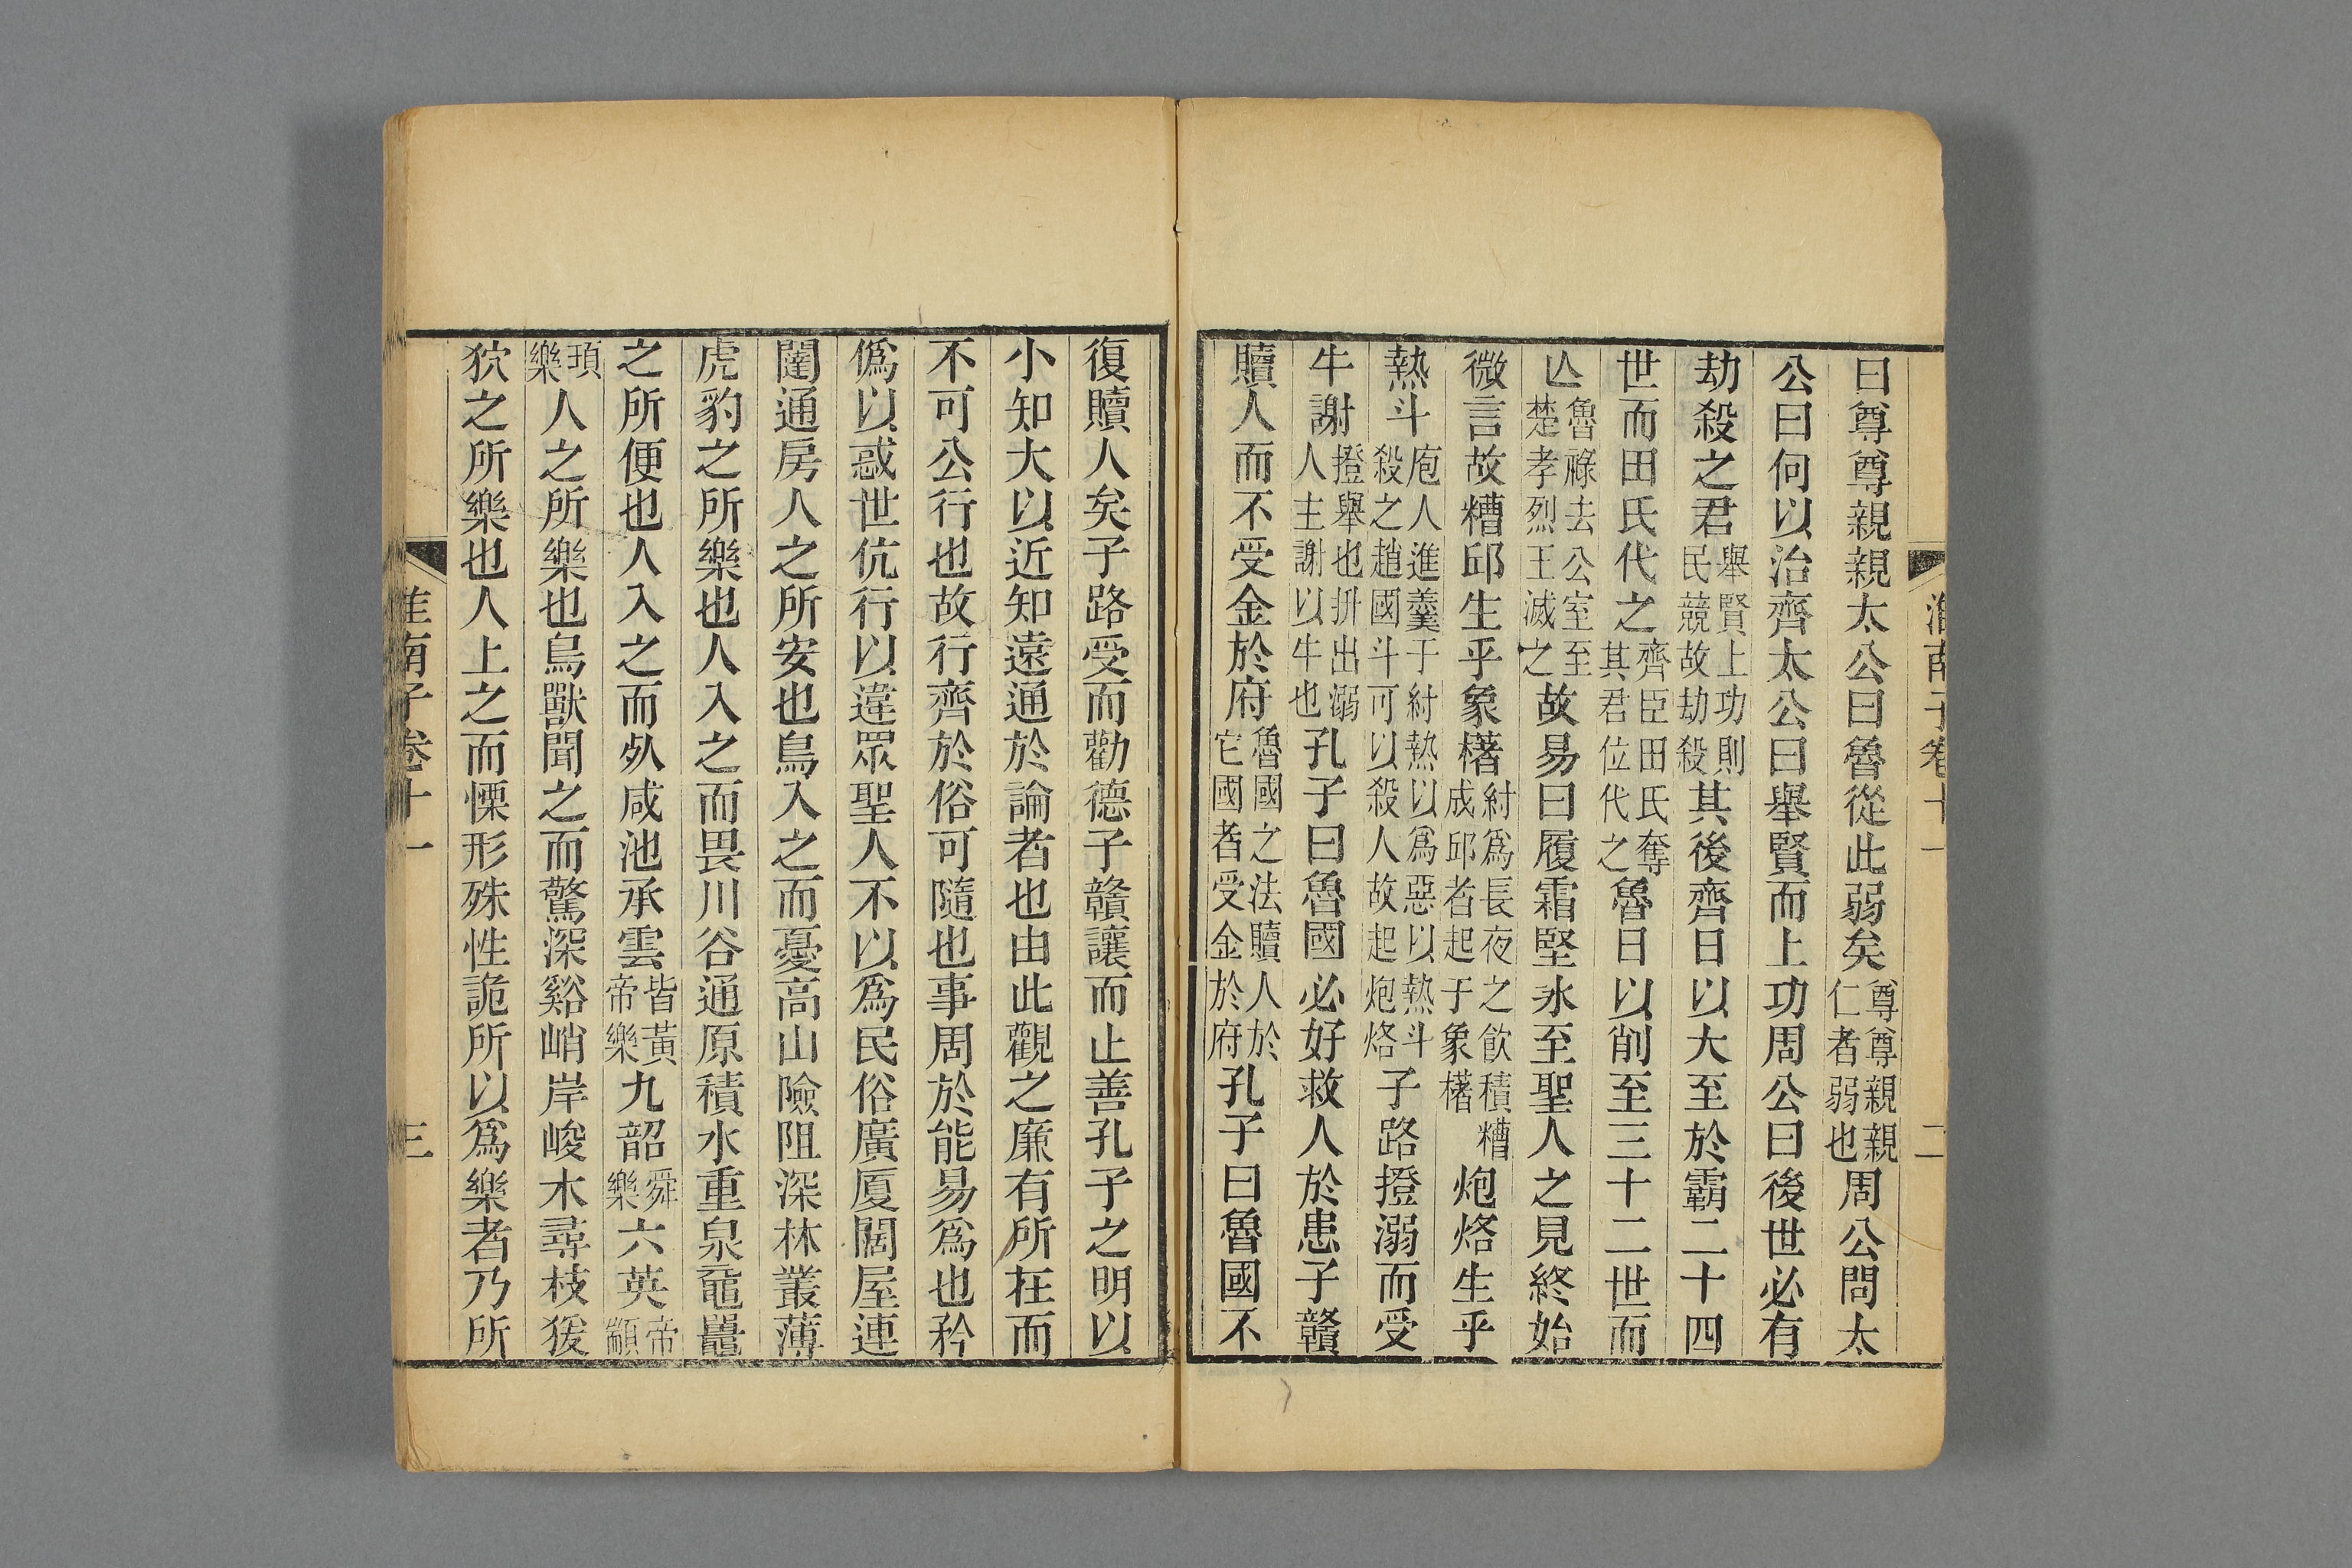 淮南子卷十一　二
曰尊尊親親太公曰魯從此弱矣尊尊親親仁者弱也周公問太
公曰何以治齊太公曰舉賢而上功周公曰後世必有
劫殺之君舉賢上功則民競故劫殺其後齊日以大至於霸二十四
世而田氏代之齊臣田氏奪其君位代之魯日以削至三十二世而
亾魯祿去公室至楚孝烈王滅之故易曰履霜堅冰至聖人之見終始
微言故糟邱生乎象櫡紂爲長夜之飮積糟成邱者起于象櫡炮烙生乎
熱斗庖人進羹于紂熱以爲惡以熱斗殺之趙國斗可以殺人故起炮烙子路撜溺而受
牛謝撜舉也抍出溺人主謝以牛也孔子曰魯國必好救人於患子贛
贖人而不受金於府魯國之法贖人於它國者受金於府孔子曰魯國不
復贖人矣子路受而勸德子贛讓而止善孔子之明以
小知大以近知遠通於論者也由此觀之廉有所在而
不可公行也故行齊於俗可隨也事周於能易爲也矜
僞以惑世伉行以違眾聖人不以爲民俗廣厦闊屋連
闥通房人之所安也鳥入之而憂高山險阻深林叢薄
虎豹之所樂也人入之而畏川谷通原積水重泉黿鼉
之所便也人入之而死咸池承雲皆黃帝樂九韶舜樂六英帝顓
頊樂人之所樂也鳥獸聞之而驚深谿峭岸峻木尋枝猨
狖之所樂也人上之而慄形殊性詭所以爲樂者乃所
淮南子卷十一　三